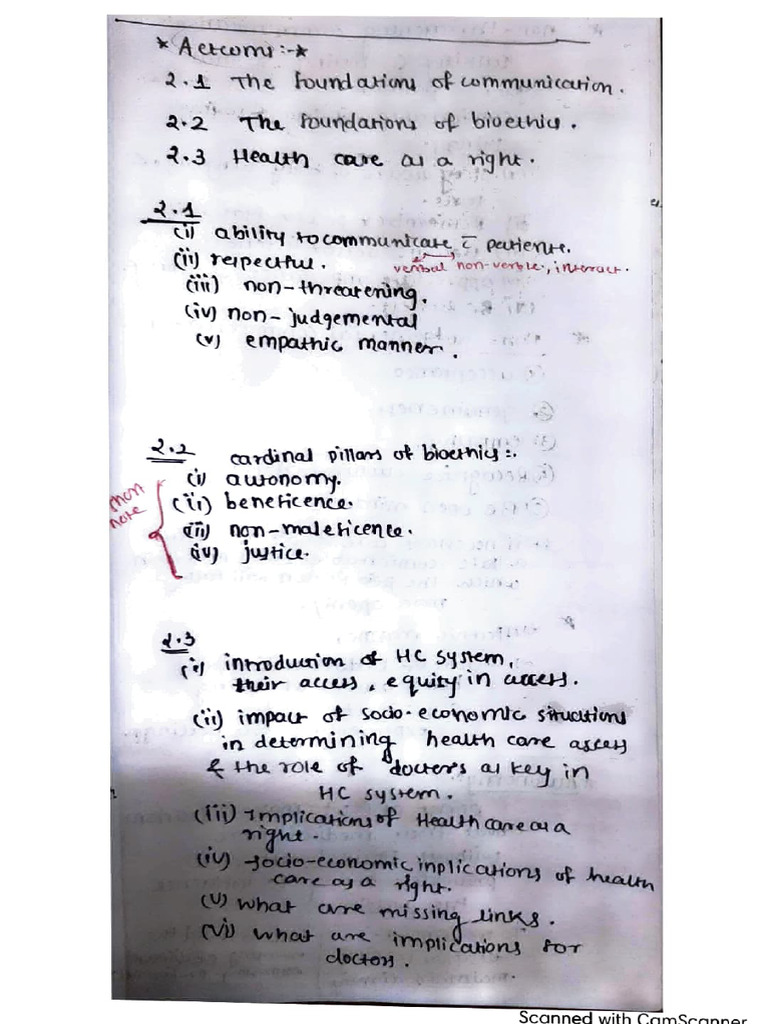 * Aetcom :-*
2.1 The foundations of communication.
2.2 The foundations of bioethics.
2.3 Health care as a right.
2.1
(i) ability to communicate c̄ patients.
verbal non-verble, interact.
(ii) respectful.
(iii) non-threatening.
(iv) non-judgemental
(v) empathic manner.
2.2 cardinal pillars of bioethics:.
(i) autonomy.
(ii) beneficence.
(iii) non-maleficence.
(iv) justice.
note
2.3
(i) introduction of HC system,
their access, equity in access.
(ii) impact of socio-economic situations
in determining health care assess
& the role of doctors as key in
HC system.
(iii) implications of Health care as a
right.
(iv) socio-economic inplications of health
care as a right.
(v) what are missing links.
(vi) what are implications for
doctors.
Scanned with CamScanner